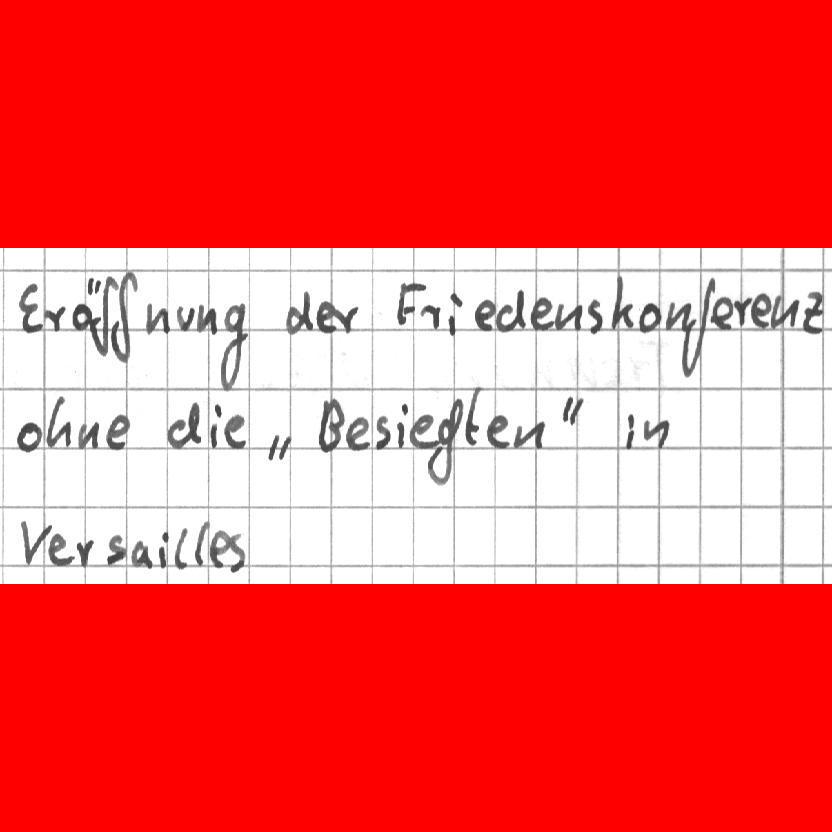 Eröffnung der Friedenskonferenz
ohne die „Besiegten" in
Versailles